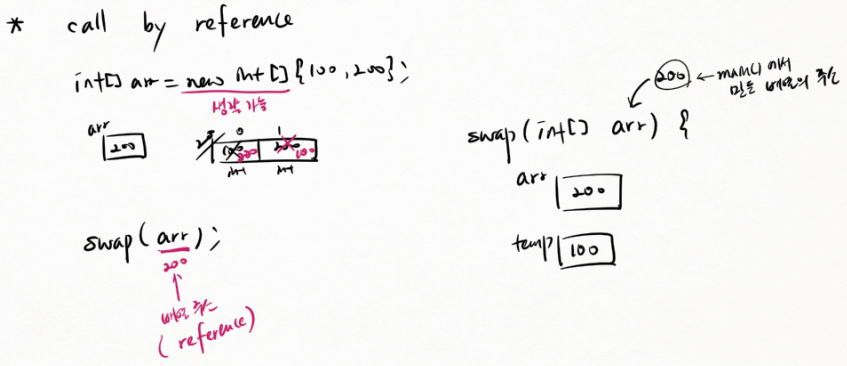 * call by reference
int[] arr = new int[]{100, 200};
생략 가능
arr
200
0 1
100 200 200 100
int int
swap(arr);
200
배열 주소
(reference)
200 ← main() 에서
만든 배열의 주소
swap(int[] arr) {
arr 200
temp 100